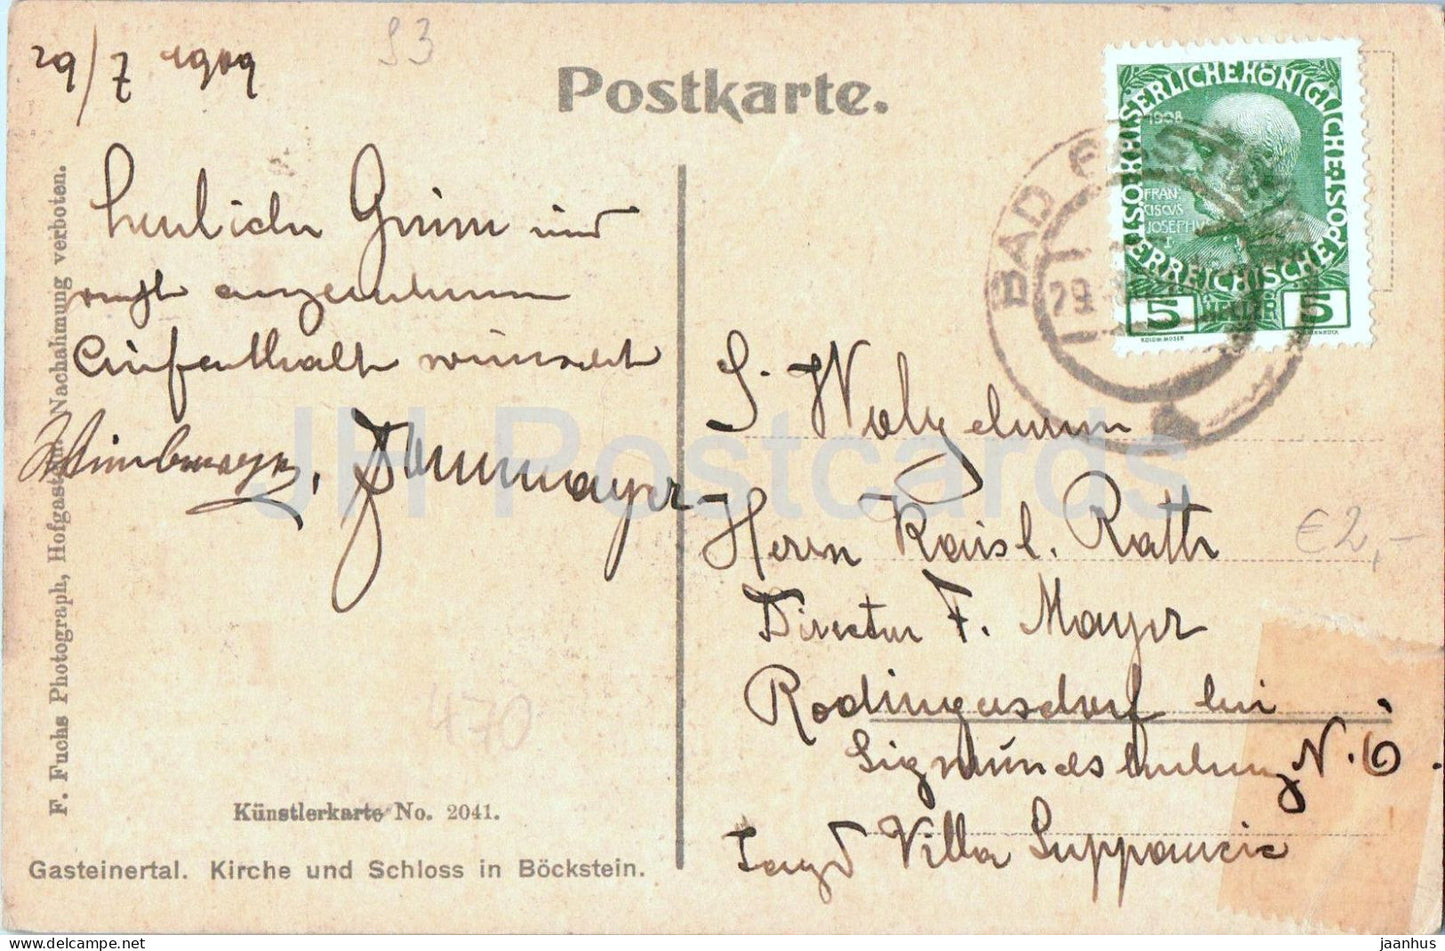 29/7 1909
93
Postkarte.
F. Fuchs Photograph, Hofgastein. Nachahmung verboten.
KAISERLICHE KÖNIGLICHE
ÖSTERREICHISCHE POST
1908
FRAN-
CISCVS
JOSEPHVS
I
5 HELLER 5
KOLOM. MOSER
BAD GASTEIN
29
herzliche Grüsse und
recht angenehmen
Aufenthalt wünscht
S. Wolgeboren
Herrn Kaisl. Rath
Director F. Mayer
Rodingersdorf bei
Sigmundsherberg N.Ö.
Jagd Villa Suppancic
€2,-
470
Künstlerkarte No. 2041.
Gasteinertal. Kirche und Schloss in Böckstein.
JH Postcards
www.delcampe.net
jaanhus